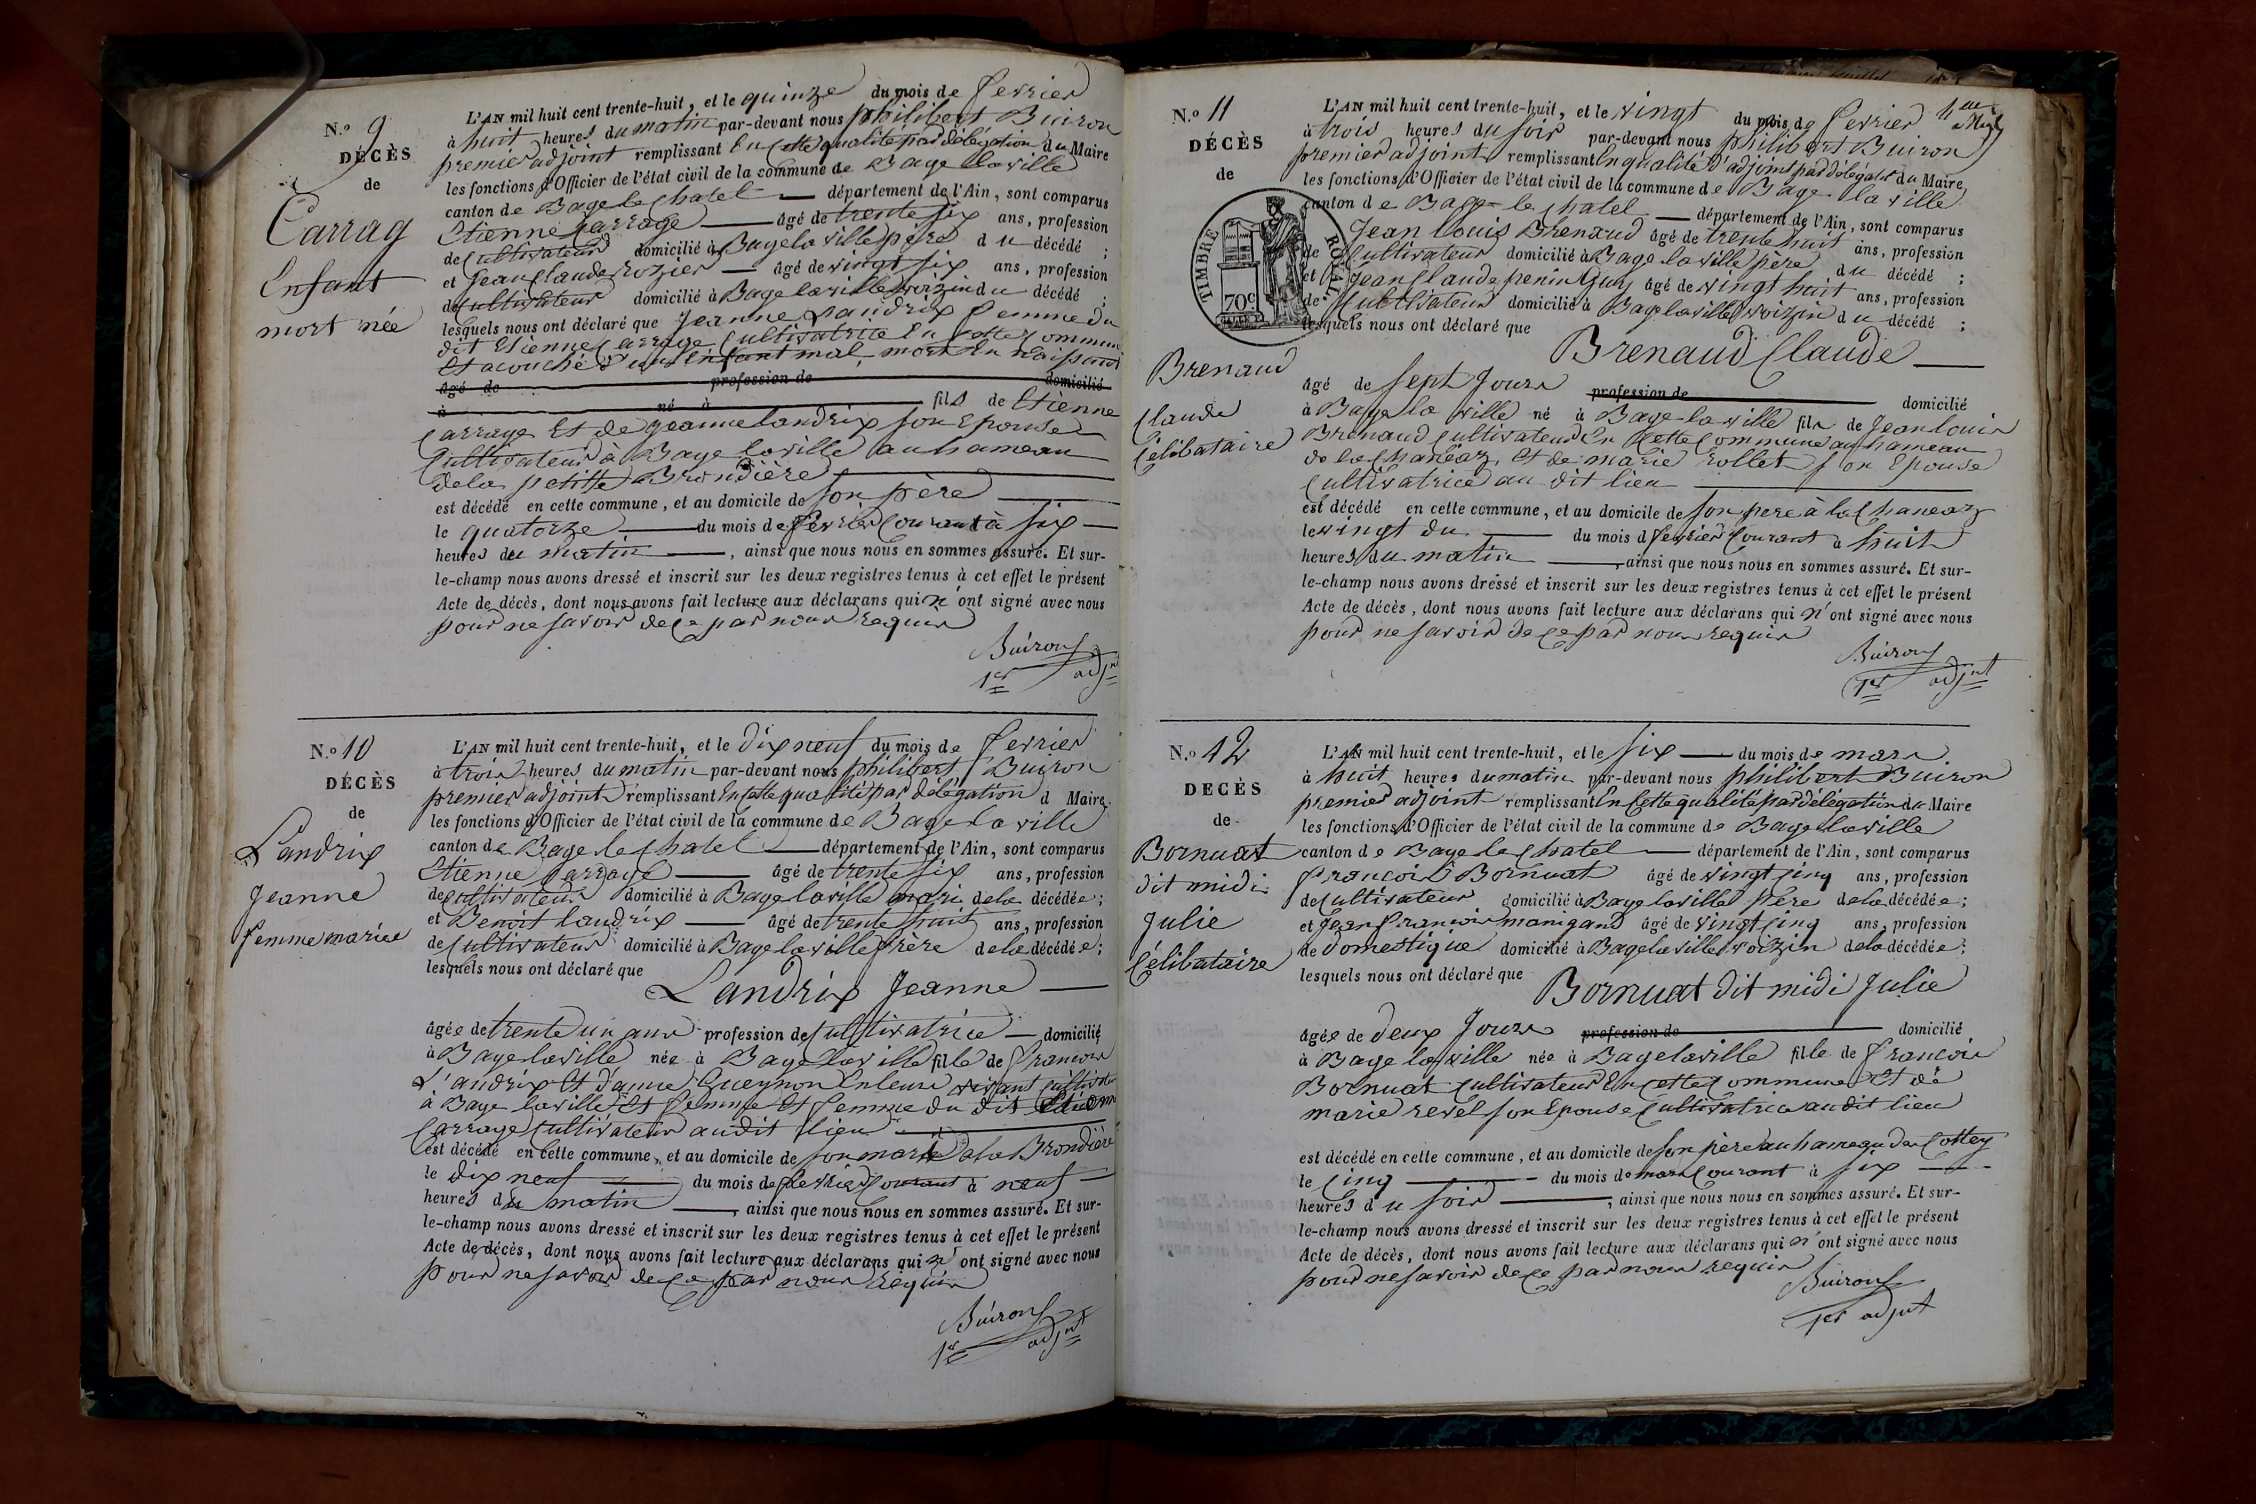 N.º 9
DÉCÈS
de
Carrag
Enfant
mort née
L'AN mil huit cent trente-huit, et le quinze du mois de fevrier
à huit heures du matin par-devant nous philibert Buiron
premier adjoint remplissant En cette qualité par délégation du Maire
les fonctions d'Officier de l'état civil de la commune de Bage la ville
canton de Bage le Chatel département de l'Ain, sont comparus
Etienne Carrage âgé de trente six ans, profession
de Cultivateur domicilié à Bage la ville père du décédé ;
et Jean Claude Rozier âgé de vingt six ans, profession
de Cultivateur domicilié à Bage la ville voizin du décédé ;
lesquels nous ont déclaré que Jeanne Landrix femme du
dit Etienne Carrage Cultivatrice En Cette Commune
Est acouché d'un Enfant mal mort En naissant
âgé de profession de domicilié
à né à fils de Etienne
Carrage Et de jeanne landrix son Epouse
Cultivateur à Bage la ville au hameau
de la petitte Brondière
est décédé en cette commune, et au domicile de son père
le quatorze du mois de fevrier Courant à six
heures du matin, ainsi que nous nous en sommes assuré. Et sur-
le-champ nous avons dressé et inscrit sur les deux registres tenus à cet effet le présent
Acte de décès, dont nous avons fait lecture aux déclarans qui n'ont signé avec nous
pour ne savoir de ce par nour requir
Buiron
1er adjt
N.º 10
DÉCÈS
de
Landrix
Jeanne
femme mariée
L'AN mil huit cent trente-huit, et le dix neuf du mois de fevrier
à trois heures du matin par-devant nous philibert Buiron
premier adjoint remplissant En cette qualité par délégation d Maire
les fonctions d'Officier de l'état civil de la commune de Bage la ville
canton de Bage le Chatel département de l'Ain, sont comparus
Etienne Carrage âgé de trente six ans, profession
de Cultivateur domicilié à Bage la ville mari de la décédée ;
et Benoit landrix âgé de trente huit ans, profession
de Cultivateur domicilié à Bage la ville frère de la décédée ;
lesquels nous ont déclaré que
Landrix Jeanne
âgée de trente un ans profession de Cultivatrice domicilié
à Bage la ville née à Bage la ville fille de francois
L'andrix Et d'anne Gueynon En leur vivant Cultivateur
à Bage la ville Et femme Et femme du dit Etienne
Carrage Cultivateur audit lieu
est décédé en cette commune, et au domicile de son mari à la Brondière
le dix neuf du mois de fevrier Courant à neuf
heures du matin, ainsi que nous nous en sommes assuré. Et sur-
le-champ nous avons dressé et inscrit sur les deux registres tenus à cet effet le présent
Acte de décès, dont nous avons fait lecture aux déclarans qui n'ont signé avec nous
pour ne savoir de ce par nour requir
Buiron
1er adjnt
N.º 11
DÉCÈS
de
TIMBRE ROYAL
70c
Brenaud
Claude
Célibataire
L'AN mil huit cent trente-huit, et le vingt du mois de fevrier
à trois heures du soir par-devant nous philibert Buiron
premier adjoint remplissant En qualité d'adjoint par délégation du Maire
les fonctions d'Officier de l'état civil de la commune de Bage la ville
canton de Bage le Chatel département de l'Ain, sont comparus
Jean louis Brenaud âgé de trente huit ans, profession
de Cultivateur domicilié à Bage la ville père du décédé ;
et Jean Claude penin Guy âgé de vingt huit ans, profession
de Cultivateur domicilié à Bage la ville voizin du décédé ;
lesquels nous ont déclaré que
Brenaud Claude
âgé de sept Jours profession de domicilié
à Bage la ville né à Bage la ville fils de Jean louis
Brenaud Cultivateur En Cette Commune au hameau
de la Chaneaz, Et de marie rollet son Epouse
Cultivatrice au dit lieu
est décédé en cette commune, et au domicile de son pere à la Chaneaz
le vingt du du mois d fevrier Courant à huit
heures du matin, ainsi que nous nous en sommes assuré. Et sur-
le-champ nous avons dressé et inscrit sur les deux registres tenus à cet effet le présent
Acte de décès, dont nous avons fait lecture aux déclarans qui n'ont signé avec nous
pour ne savoir de ce par nour requir
Buiron
1er adjnt
N.º 12
DÉCÈS
de
Bornuat
dit midi
Julie
Célibataire
L'AN mil huit cent trente-huit, et le six du mois de mars
à huit heures du matin par-devant nous philibert Buiron
premier adjoint remplissant En Cette qualité par délégation du Maire
les fonctions d'Officier de l'état civil de la commune de Bage la ville
canton de Bage le Chatel département de l'Ain, sont comparus
francois Bornuat âgé de vingt cinq ans, profession
de Cultivateur domicilié à Bage la ville Père de la décédée ;
et Jean francois manigand âgé de vingt cinq ans, profession
de domestique domicilié à Bage la ville voizin de la décédée ;
lesquels nous ont déclaré que
Bornuat dit midi Julie
âgée de deux Jours profession de domicilié
à Bage la ville née à Bage la ville fille de francois
Bornuat Cultivateur En Cette Commune Et de
marie revel son Epouse Cultivatrice au dit lieu
est décédé en cette commune, et au domicile de son père au hameau des Cottey
le Cinq du mois de mars Courant à six
heures du soir, ainsi que nous nous en sommes assuré. Et sur-
le-champ nous avons dressé et inscrit sur les deux registres tenus à cet effet le présent
Acte de décès, dont nous avons fait lecture aux déclarans qui n'ont signé avec nous
pour ne savoir de ce par nour requir
Buiron
1er adjnt